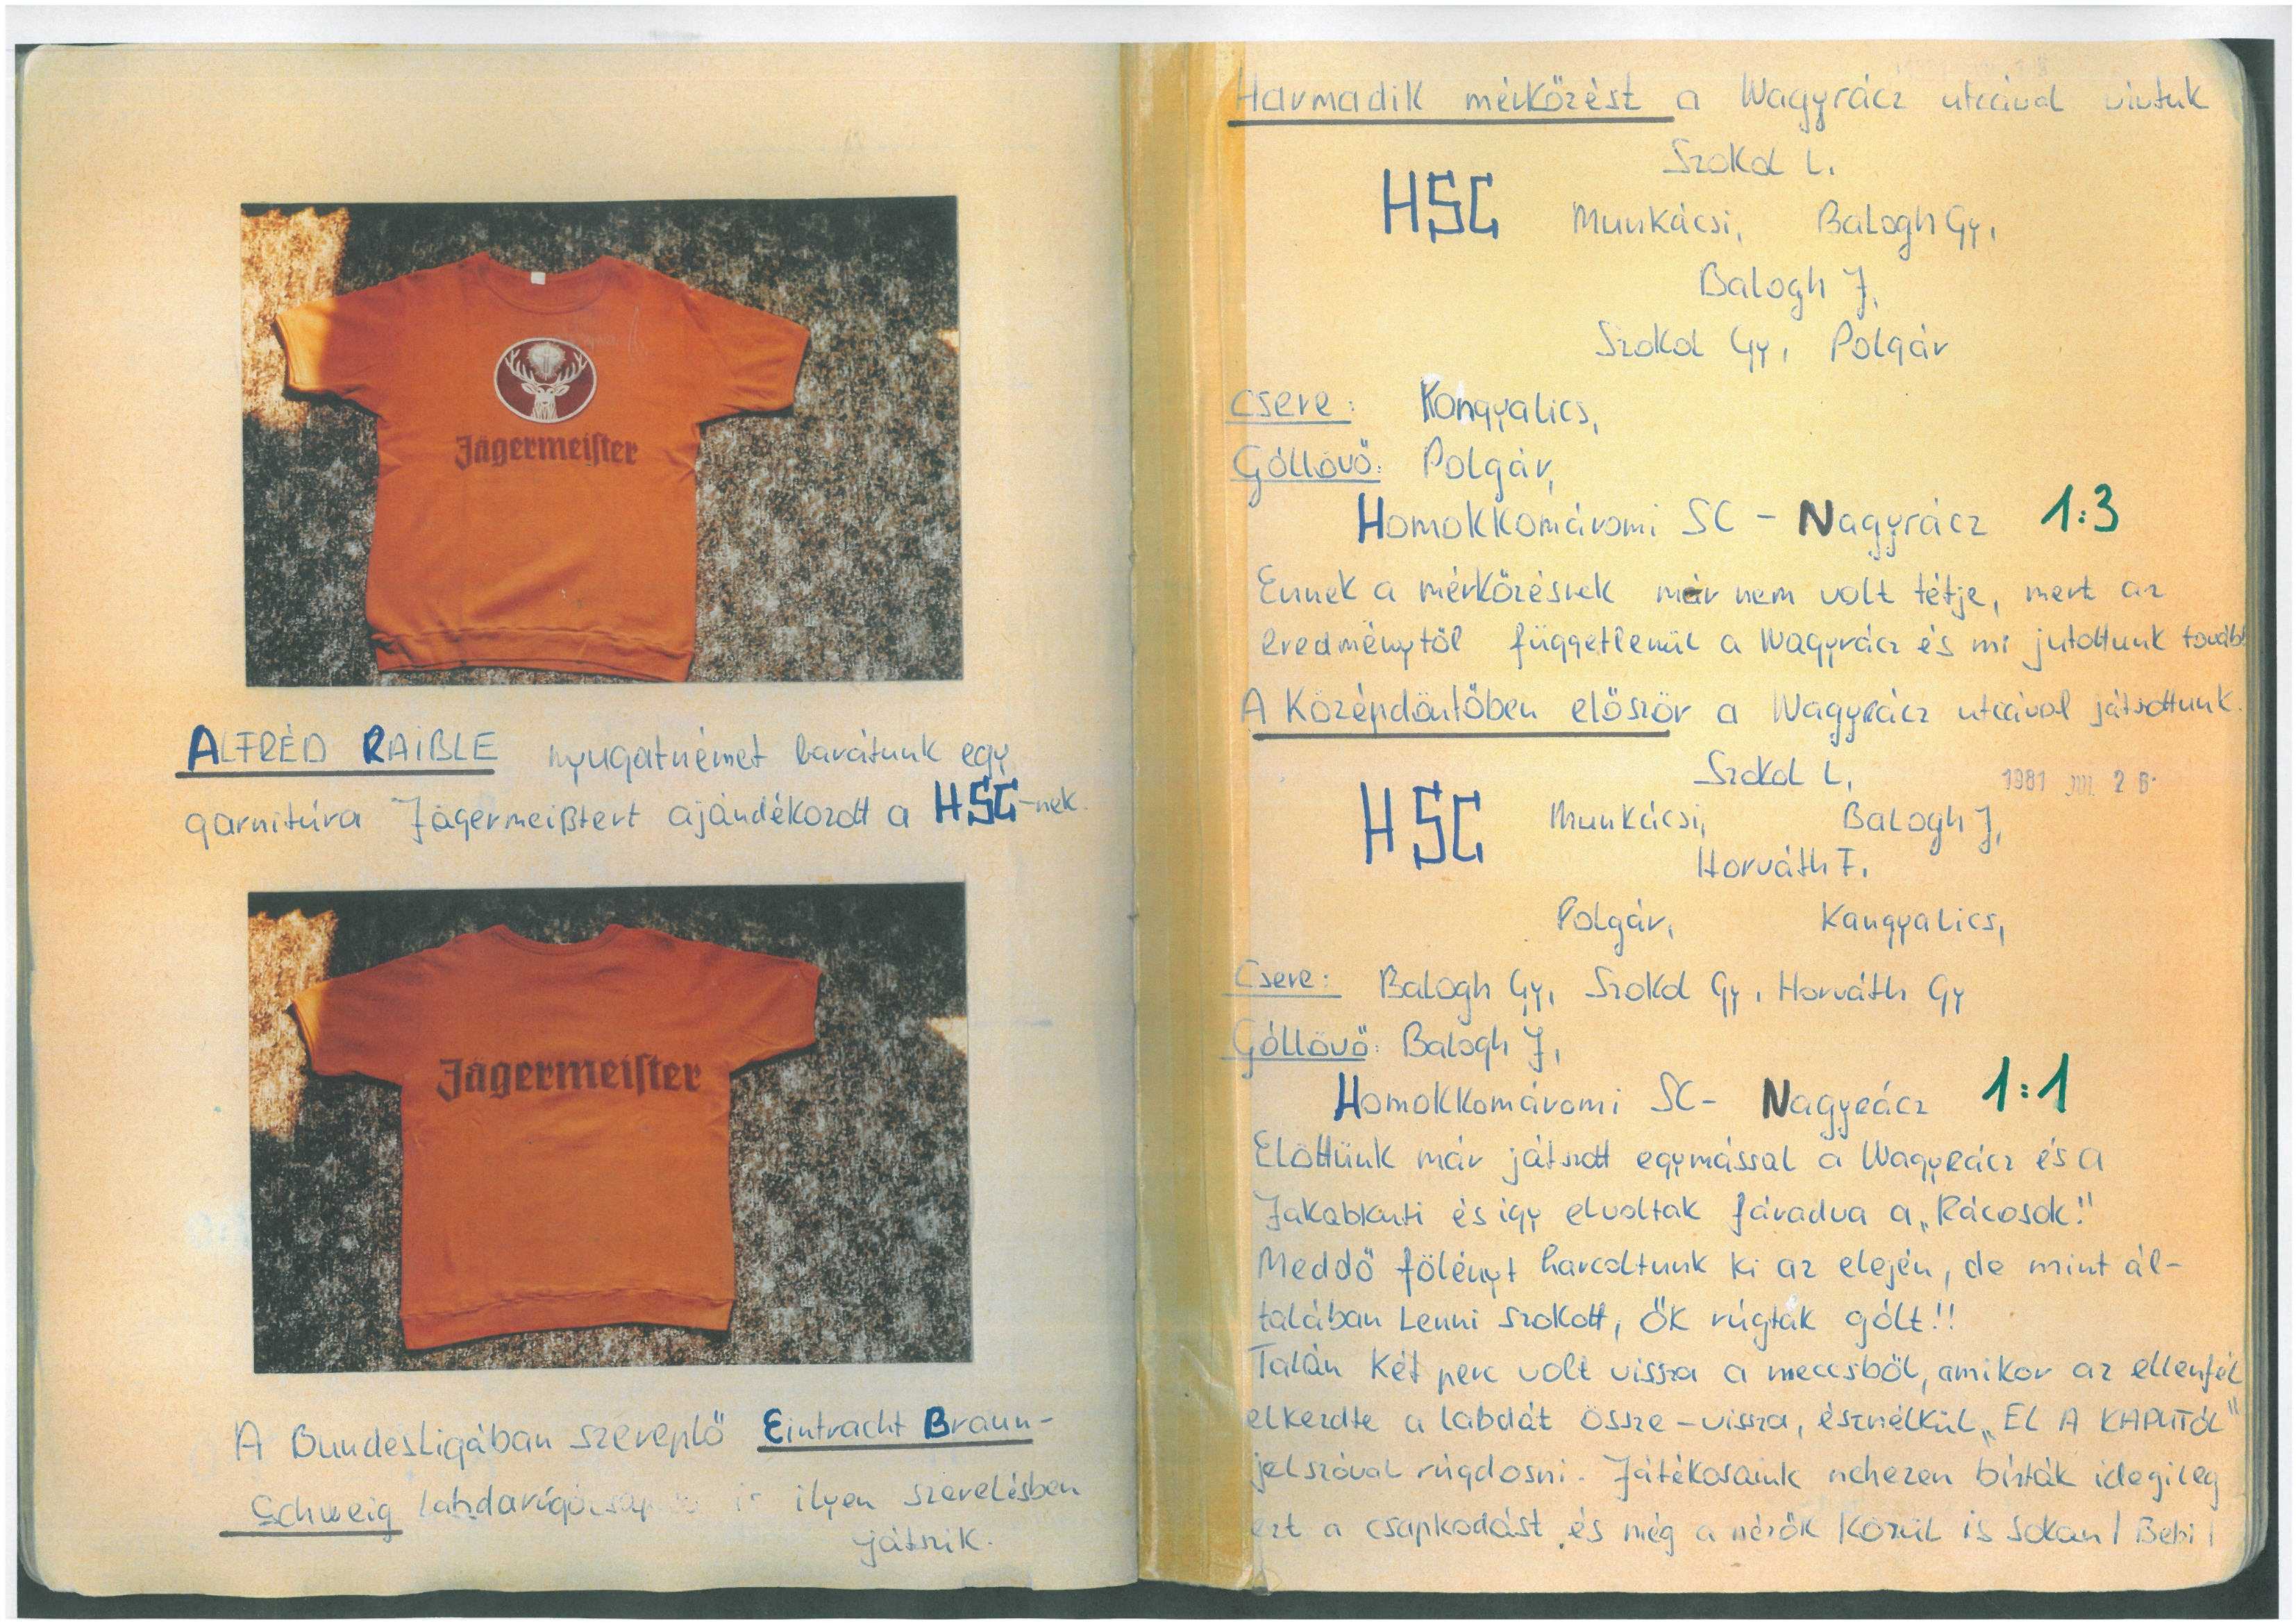 Jägermeiſter
ALFRÉD RAIBLE nyugatnémet barátunk egy
garnitúra Jägermeißtert ajándékozott a HSC-nek.
Jägermeiſter
A Bundesligában szereplő Eintracht Braun-
Schweig labdarúgócsapata is ilyen szerelésben
játszik.
Harmadik mérkőzést a Nagyrácz utcával vívtuk
Szokol L.
HSC Munkácsi, Balogh Gy,
Balogh J,
Szokol Gy, Polgár
Csere: Kongyalics,
Góllövő: Polgár,
Homokkomáromi SC - Nagyrácz 1:3
Ennek a mérkőzésnek már nem volt tétje, mert az
eredménytől függetlenül a Nagyrácz és mi jutottunk tovább
A Középdöntőben először a Nagyrácz utcával játszottunk.
Szokol L, 1981 JÚL 28.
HSC Munkácsi, Balogh J,
Horváth F.
Polgár, Kangyalics,
Csere: Balogh Gy, Szokol Gy, Horváth Gy
Góllövő: Balogh J,
Homokkomáromi SC- Nagyrácz 1:1
Előttünk már játszott egymással a Nagyrácz és a
Jakabkuti és igy elvoltak fáradva a „Rácosok!"
Meddő fölényt harcoltunk ki az elején, de mint ál-
talában lenni szokott, ők rúgták gólt!!
Talán két perc volt vissza a meccsből, amikor az ellenfél
elkezdte a labdát össze-vissza, észnélkül „EL A KAPUTÓL"
jelszóval rúgdosni. Játékosaink nehezen bírták idegileg
ezt a csapkodást, és még a nézők közül is sokan / Bebi /